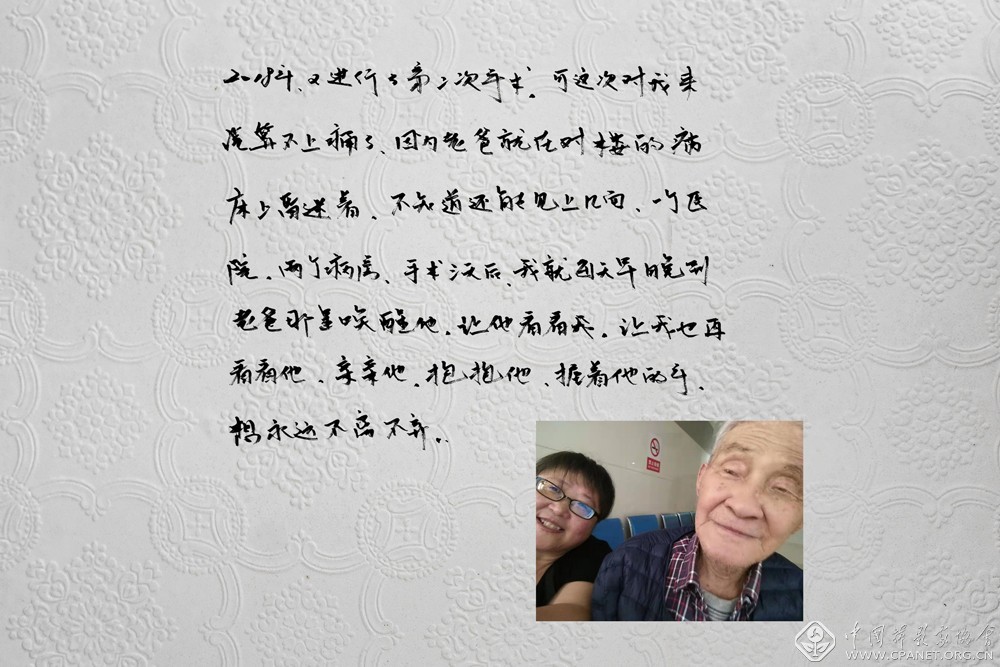 2018年、又进行了第二次手术。可这次对我来
说算不上痛了、因为老爸就在对楼的病
床上昏迷着、不知道还能见上几面、一个医
院、两个病房、手术后、我就每天早晚到
老爸那里唤醒他、让他看看我、让我也再
看看他、亲亲他、抱抱他、握着他的手、
想永远不离不弃。
中国摄影家协会
WWW.CPANET.ORG.CN